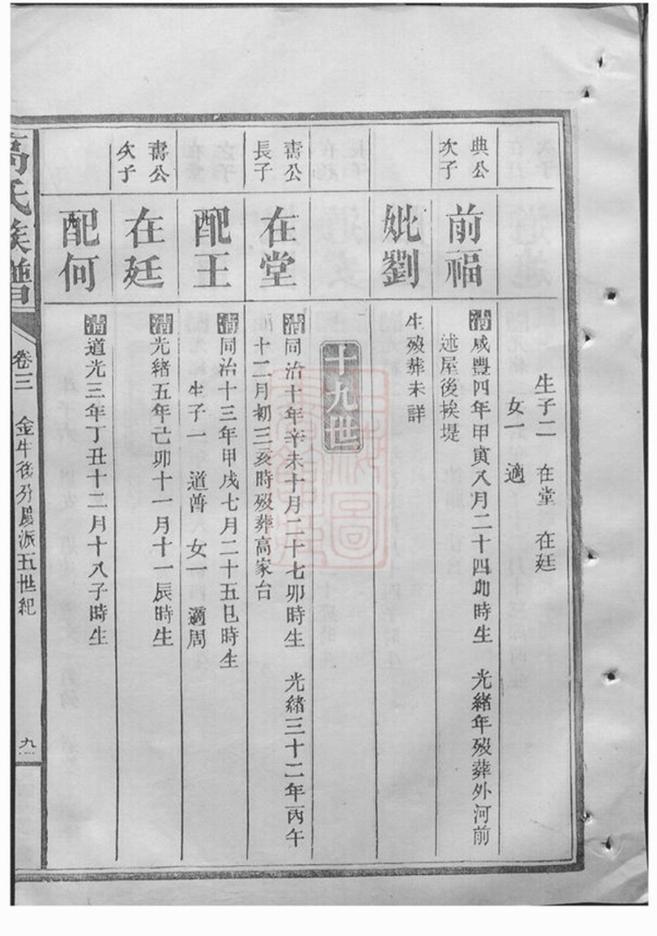 生子二　在堂　在廷
女一　適
典公
次子
前福
清咸豐四年甲寅八月二十四卯時生　光緒年歿葬外河前
述屋後挨堤
妣劉
生歿葬未詳
十九世
壽公
長子
在堂
清同治十年辛未十月二十七卯時生　光緒三十二年丙午
十二月初三亥時歿葬高家台
配王
清同治十三年甲戌七月二十五巳時生
生子一　道普　女一　適周
壽公
次子
在廷
清光緒五年己卯十一月十一辰時生
配何
清道光三年丁丑十二月十八子時生
高氏族譜
卷三
金牛後分鳳派五世紀
九